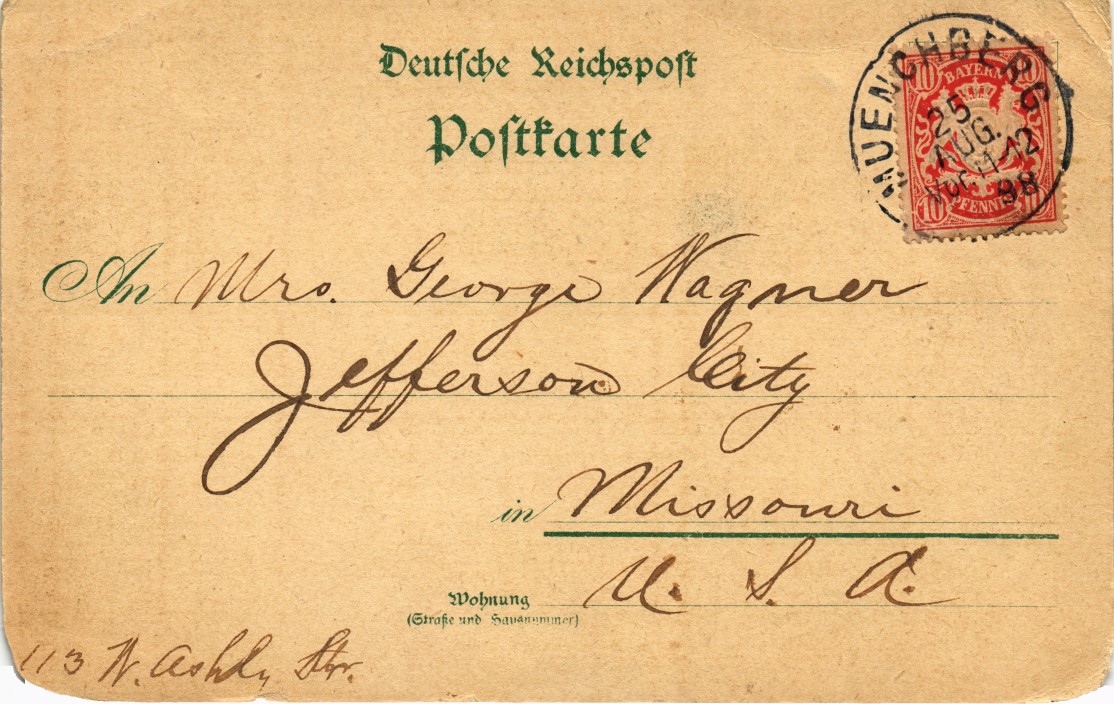 Deutsche Reichspost
Postkarte
MUENCHBERG
25
AUG.
Vor 11-12
98
10 10
BAYERN
PFENNIG
10 10
An Mrs. George Wagner
Jefferson City
in Missouri
U. S. A.
Wohnung
(Straße und Hausnummer)
113 W. Ashly Str.